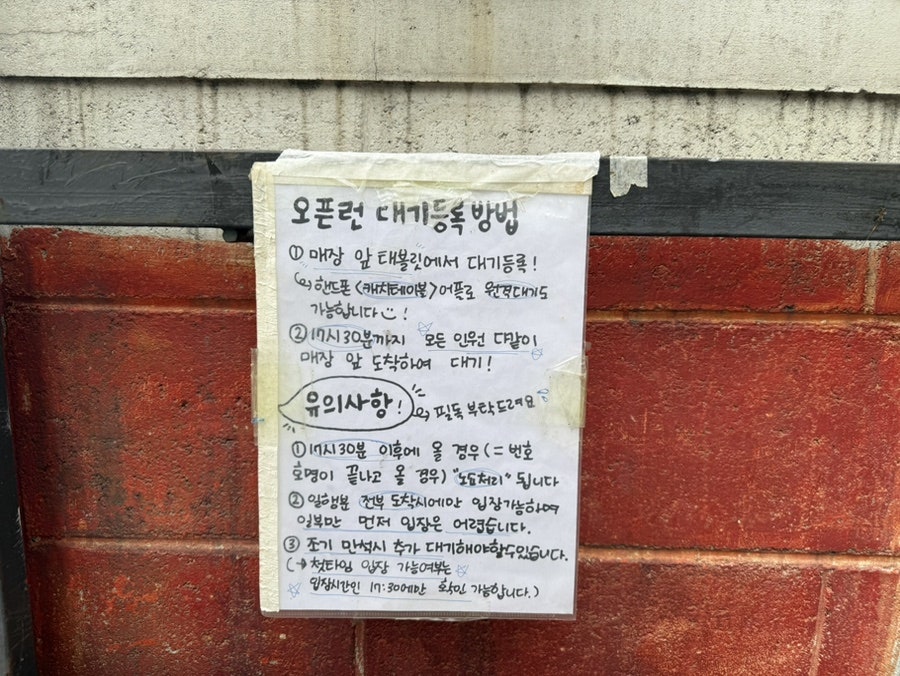 오픈런 대기등록 방법
① 매장 앞 태블릿에서 대기등록!
핸드폰 <캐치테이블>어플로 원격대기도
가능합니다 !
② 17시30분까지 모든 인원 다같이
매장 앞 도착하여 대기!
유의사항! 필독 부탁드려요
① 17시30분 이후에 올 경우(= 번호
호명이 끝나고 올 경우) "노쇼처리" 됩니다
② 일행분 전부 도착시에만 입장가능하며
일부만 먼저 입장은 어렵습니다.
③ 조기 만석시 추가 대기해야할수있습니다.
(→ 첫타임 입장 가능여부는
입장시간인 17:30에만 확인 가능합니다.)